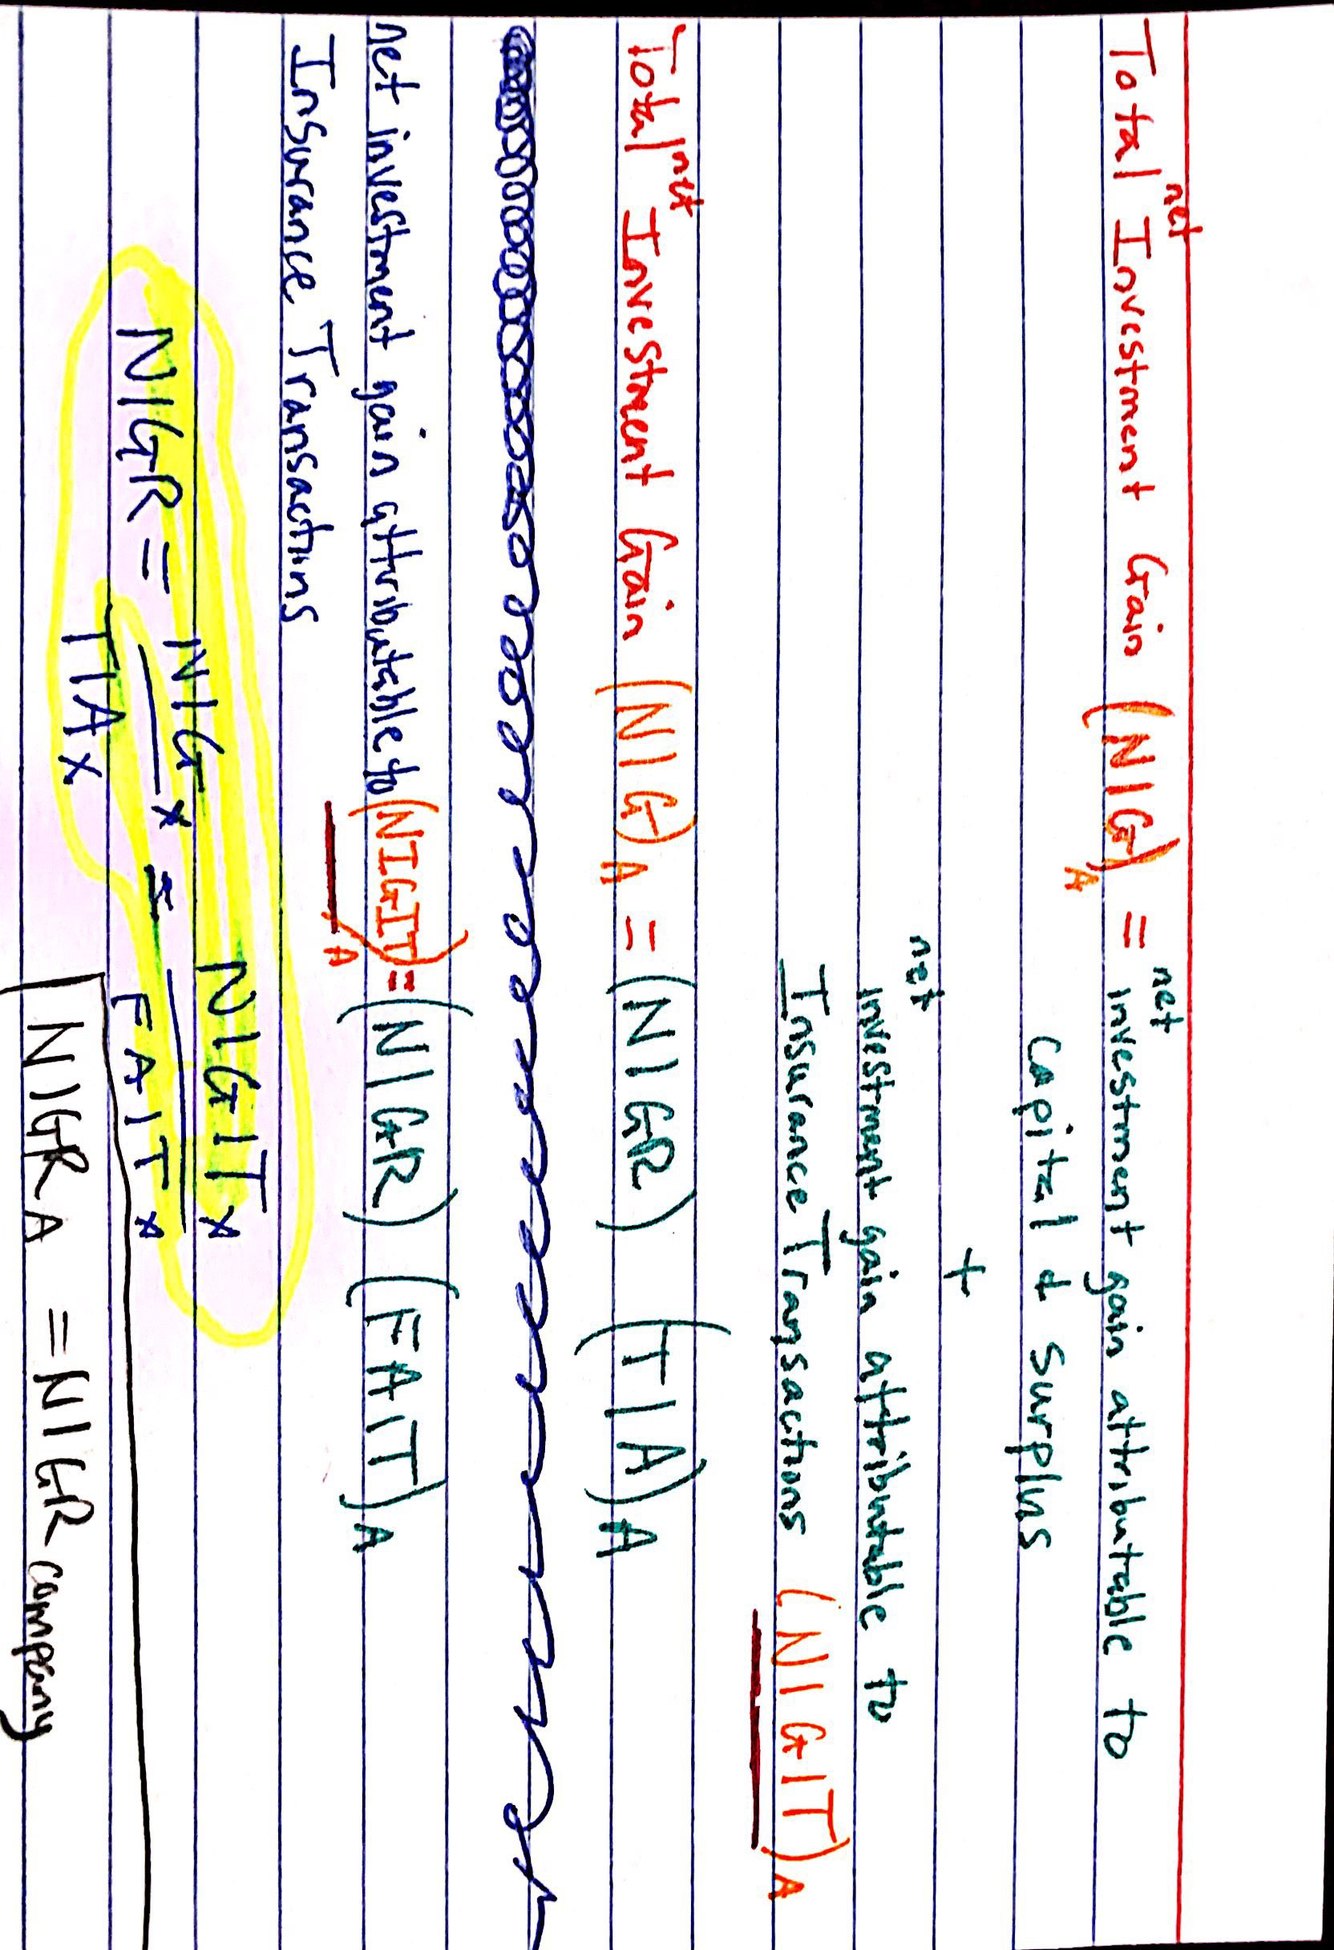 Total net Investment Gain (NIG)A = net investment gain attributable to
Capital & Surplus
+
net investment gain attributable to
Insurance Transactions (NIGIT)A
Total net Investment Gain (NIG)A = (NIGR) (TIA)A
net investment gain attributable to (NIGIT)A = (NIGR) (FAIT)A
Insurance Transactions
NIGR = NIGx / TIAx = NIGITx / FAITx
NIGRA = NIGR company